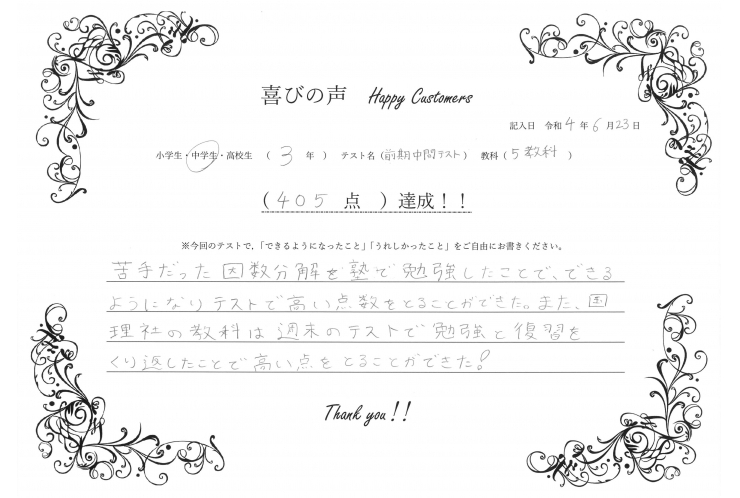 喜びの声 Happy Customers
記入日 令和4年6月23日
小学生・中学生・高校生 （ 3 年 ） テスト名（前期中間テスト） 教科（5教科 ）
（405 点 ）達成！！
※今回のテストで，「できるようになったこと」「うれしかったこと」をご自由にお書きください。
苦手だった因数分解を塾で勉強したことで、できる
ようになりテストで高い点数をとることができた。また、国
理社の教科は週末のテストで勉強と復習を
くり返したことで高い点をとることができた!
Thank you!!